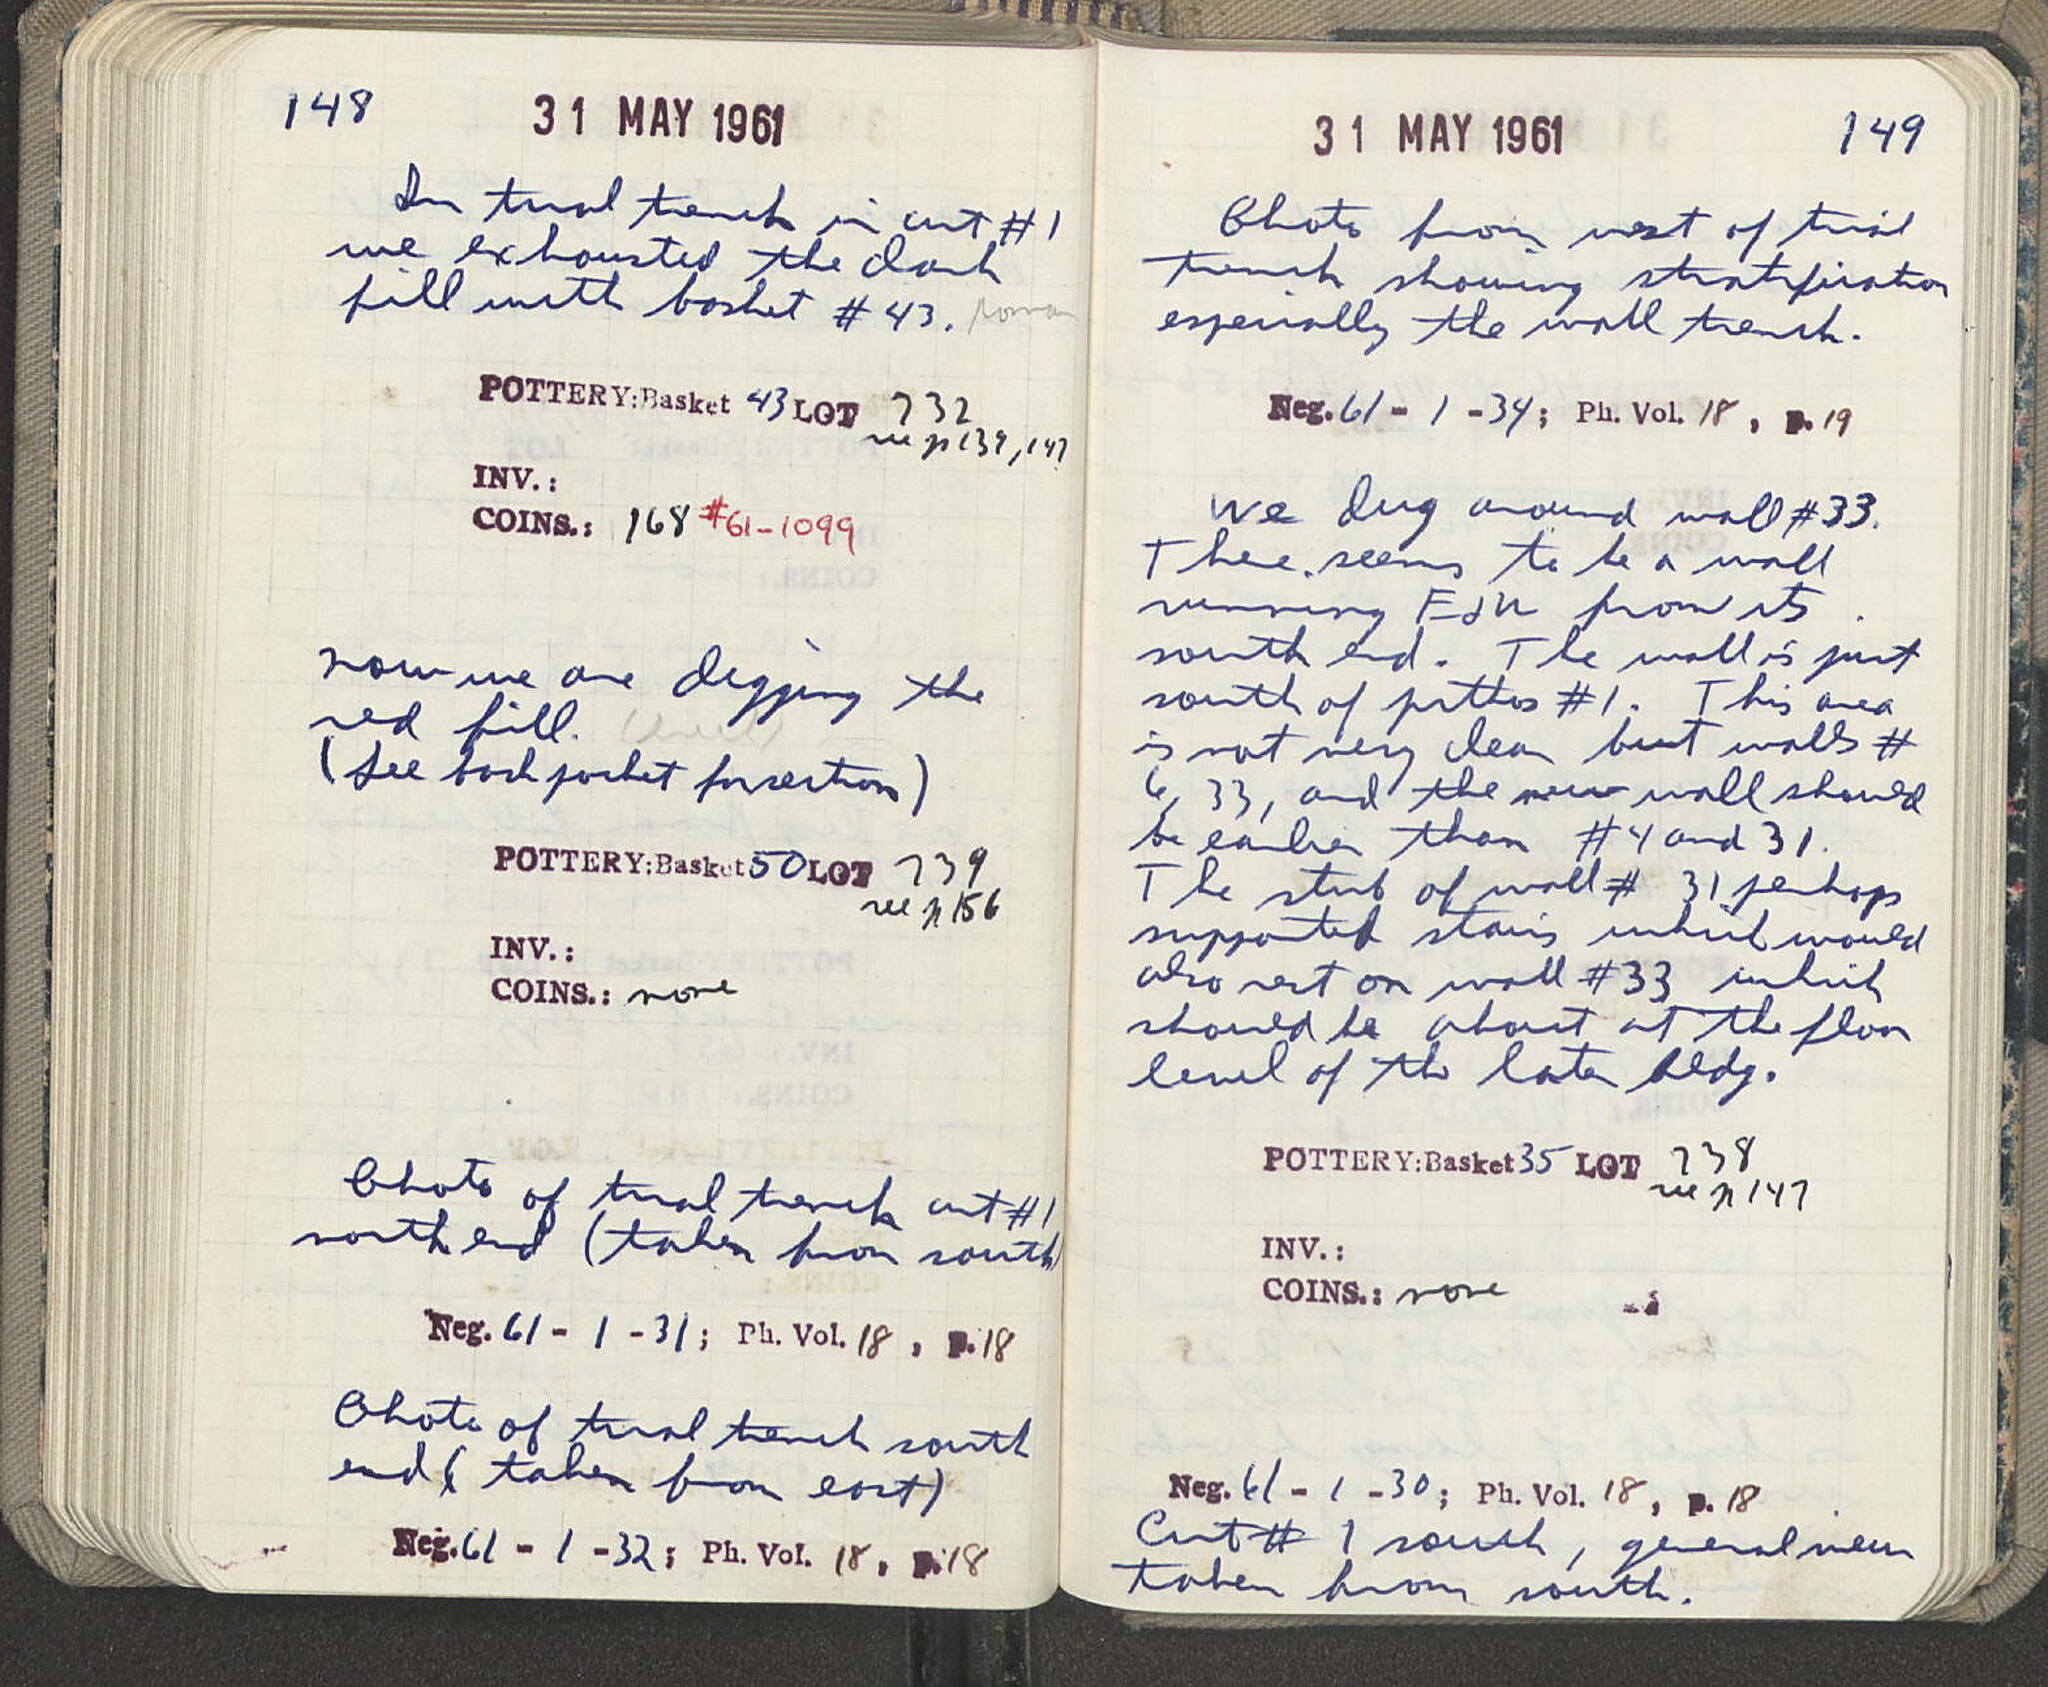 148
31 MAY 1961
In trial trench in cut #1
we exhausted the dark
fill with basket #43. Roman
POTTERY: Basket 43 LOT 732
see p 139, 147
INV.:
COINS.: 168 #61-1099
Now we are digging the
red fill.
(See back pocket for section)
POTTERY: Basket 50 LOT 739
see p 156
INV.:
COINS.: none
Photo of trial trench cut #1
north end (taken from south)
Neg. 61 - 1 - 31; Ph. Vol. 18, p. 18
Photo of trial trench south
end (taken from east)
Neg. 61 - 1 - 32; Ph. Vol. 18, p. 18
31 MAY 1961
149
Photo from west of trial
trench showing stratification
especially the wall trench.
Neg. 61 - 1 - 34; Ph. Vol. 18, p. 19
We dug around wall #33.
There seems to be a wall
running E+W from its
south end. The wall is just
south of pithos #1. This area
is not very clear but walls #
6, 33, and the new wall should
be earlier than #4 and 31.
The stub of wall # 31 perhaps
supported stairs which would
also rest on wall #33 which
should be about at the floor
level of the later bldg.
POTTERY: Basket 35 LOT 738
see p 147
INV.:
COINS.: none
Neg. 61 - 1 - 30; Ph. Vol. 18, p. 18
Cut # 1 south, general view
taken from south.